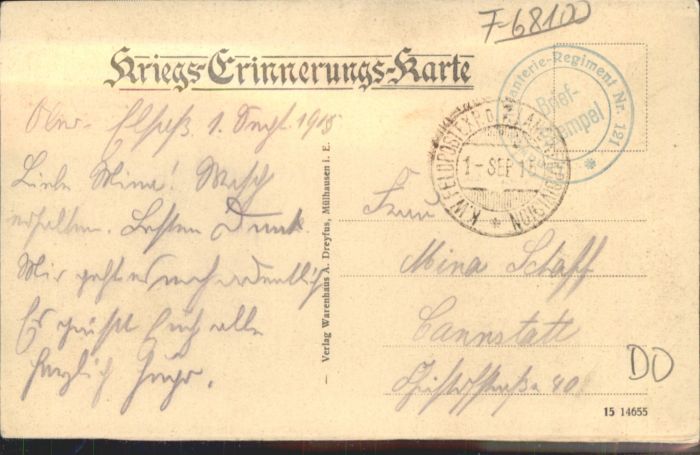 F-68100
Kriegs-Erinnerungs-Karte
Infanterie-Regiment Nr. 121
Brief-
stempel
K.W. FELDPOSTEXP. D. LANDW. DIVISION
1-SEP 15
Ober-Elsaß, 1. Sept. 1915
Liebe Mina! Wäsche
erhalten. Besten Dank.
Mir geht es noch ordentlich
Es grüßt Euch alle
herzlich
Verlag Warenhaus A. Dreyfus, Mülhausen i. E.
Frau
Mina Schaff
Cannstatt
40
DO
15 14655